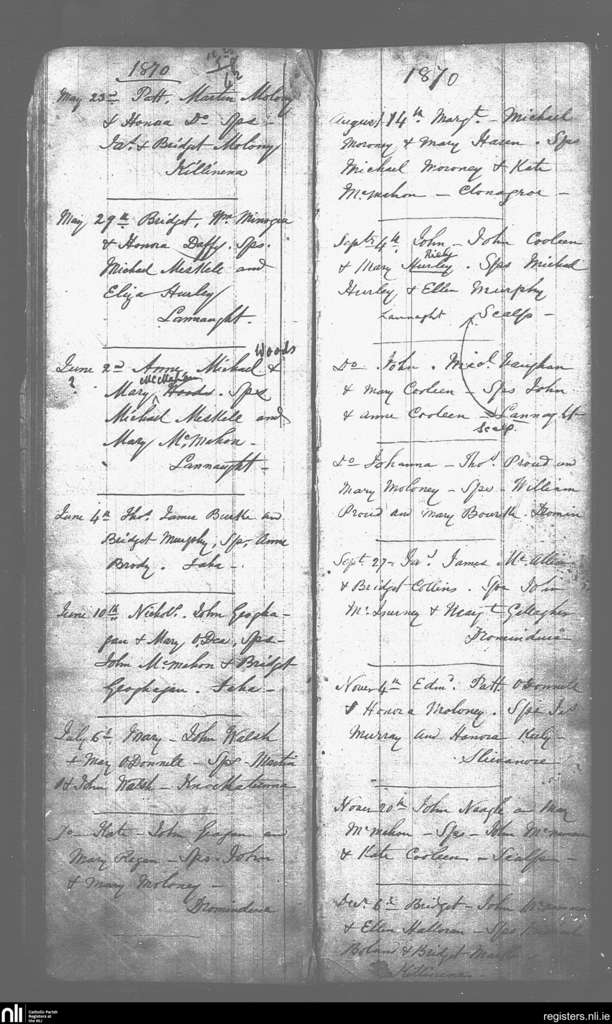 1870
May 23rd Patt, Martin Molony
& Honora Do Sps -
Jas. & Bridget Molony
Killinena
May 29th Bridget, Wm Minogea
& Honora Daffy. Sps.
Michael Meskell and
Eliza Hurley
Lannaught.
Woods
June 2nd Anne, Michael &
? Mary McMahon Woods. Sps
Michael Meskell and
Mary McMahon -
Lannaught -
June 4th Thos. James Burke an
Bridget Murphy, Sps, Anne
Brody. Laha -
June 10th Nichols. John Geogha-
gan & Mary O'Dea, Sps -
John McMahon & Bridget
Geoghagan. Laha -
July 6th Mary - John Walsh
& Mary O'Donnell - Sps Martin
& John Walsh -
Do Kate - John Geagan an
Mary Regan - Sps John
& Mary Moloney -
Drominduve
1870
August 14th Margt. - Michael
Moroney & Mary Hasen. Sps
Michael Moroney & Kate
McMahon - Clonagroe -
Septr 4th, John, John Cooleen
Riely
& Mary Hurley. Sps Michael
Hurley & Ellen Murphy
Lannaght Scalp -
Do John. Michl. Vaughan
& Mary Cooleen - Sps John
& Anne Cooleen - Lannaght
Scalp.
Do Johanna - Thos. Proud an
Mary Moloney - Sps - William
Proud and Mary Bourke. Dromin
Sept. 27 - Jas. James
& Bridget Collins. Sps John
McInerney & Margt Gallagher
Drominduve
Novr 4th Edmd. Patt O'Donnell
& Honora Moloney. Sps Jas
Murray and Honora Keely -
Slievanore
Novr 20th John Naagle an Mary
McMahon - Sps - John
& Kate Cooleen - Scalp -
Decr. 6th Bridget - John
& Ellen Halloran - Sps
Boland & Bridget
Killinena
nli Catholic Parish Registers at the NLI
registers.nli.ie